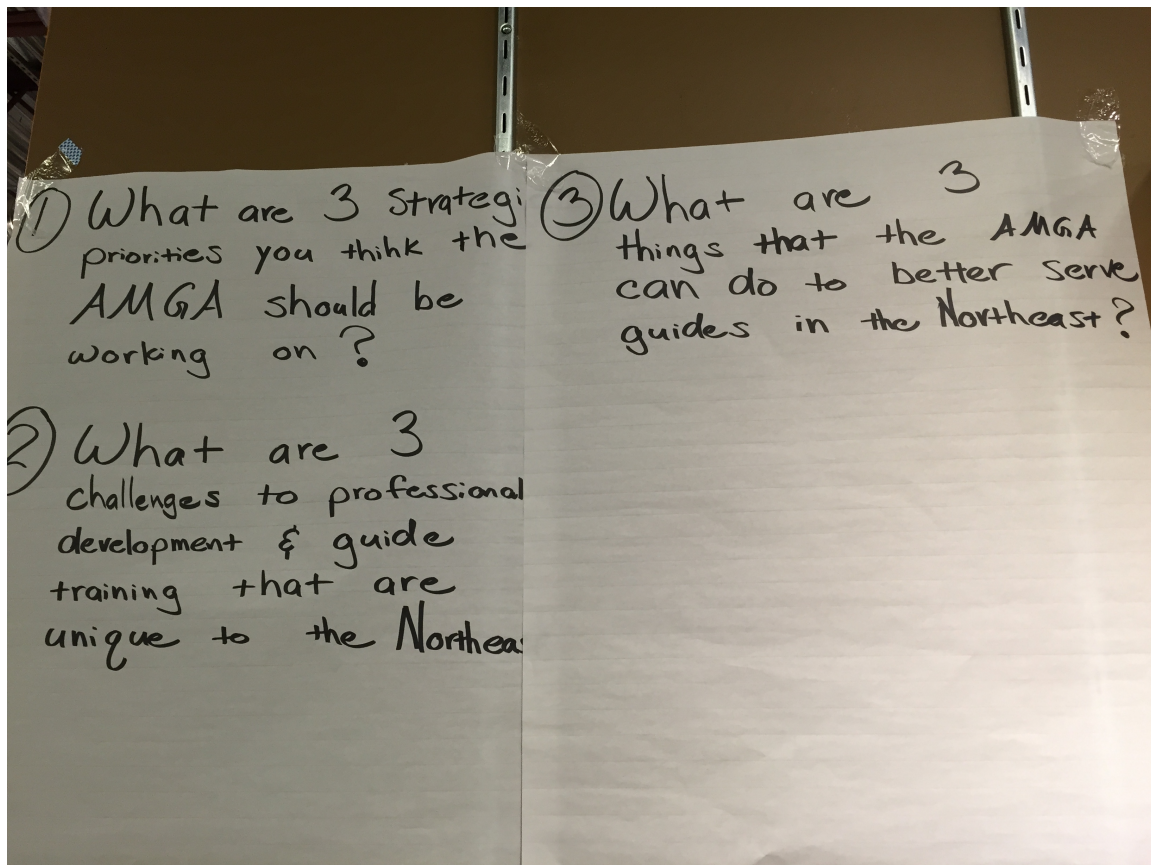 ① What are 3 Strategi
priorities you think the
AMGA should be
working on ?
② What are 3
challenges to professional
development & guide
training that are
unique to the Northeas
③ What are 3
things that the AMGA
can do to better serve
guides in the Northeast ?